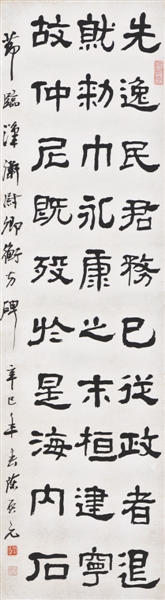 先逸民君務已從政者退
就勑巾永康之末桓建寧
故仲尼既歿於是海内石
節臨漢衛尉卿衡方碑 辛巳年